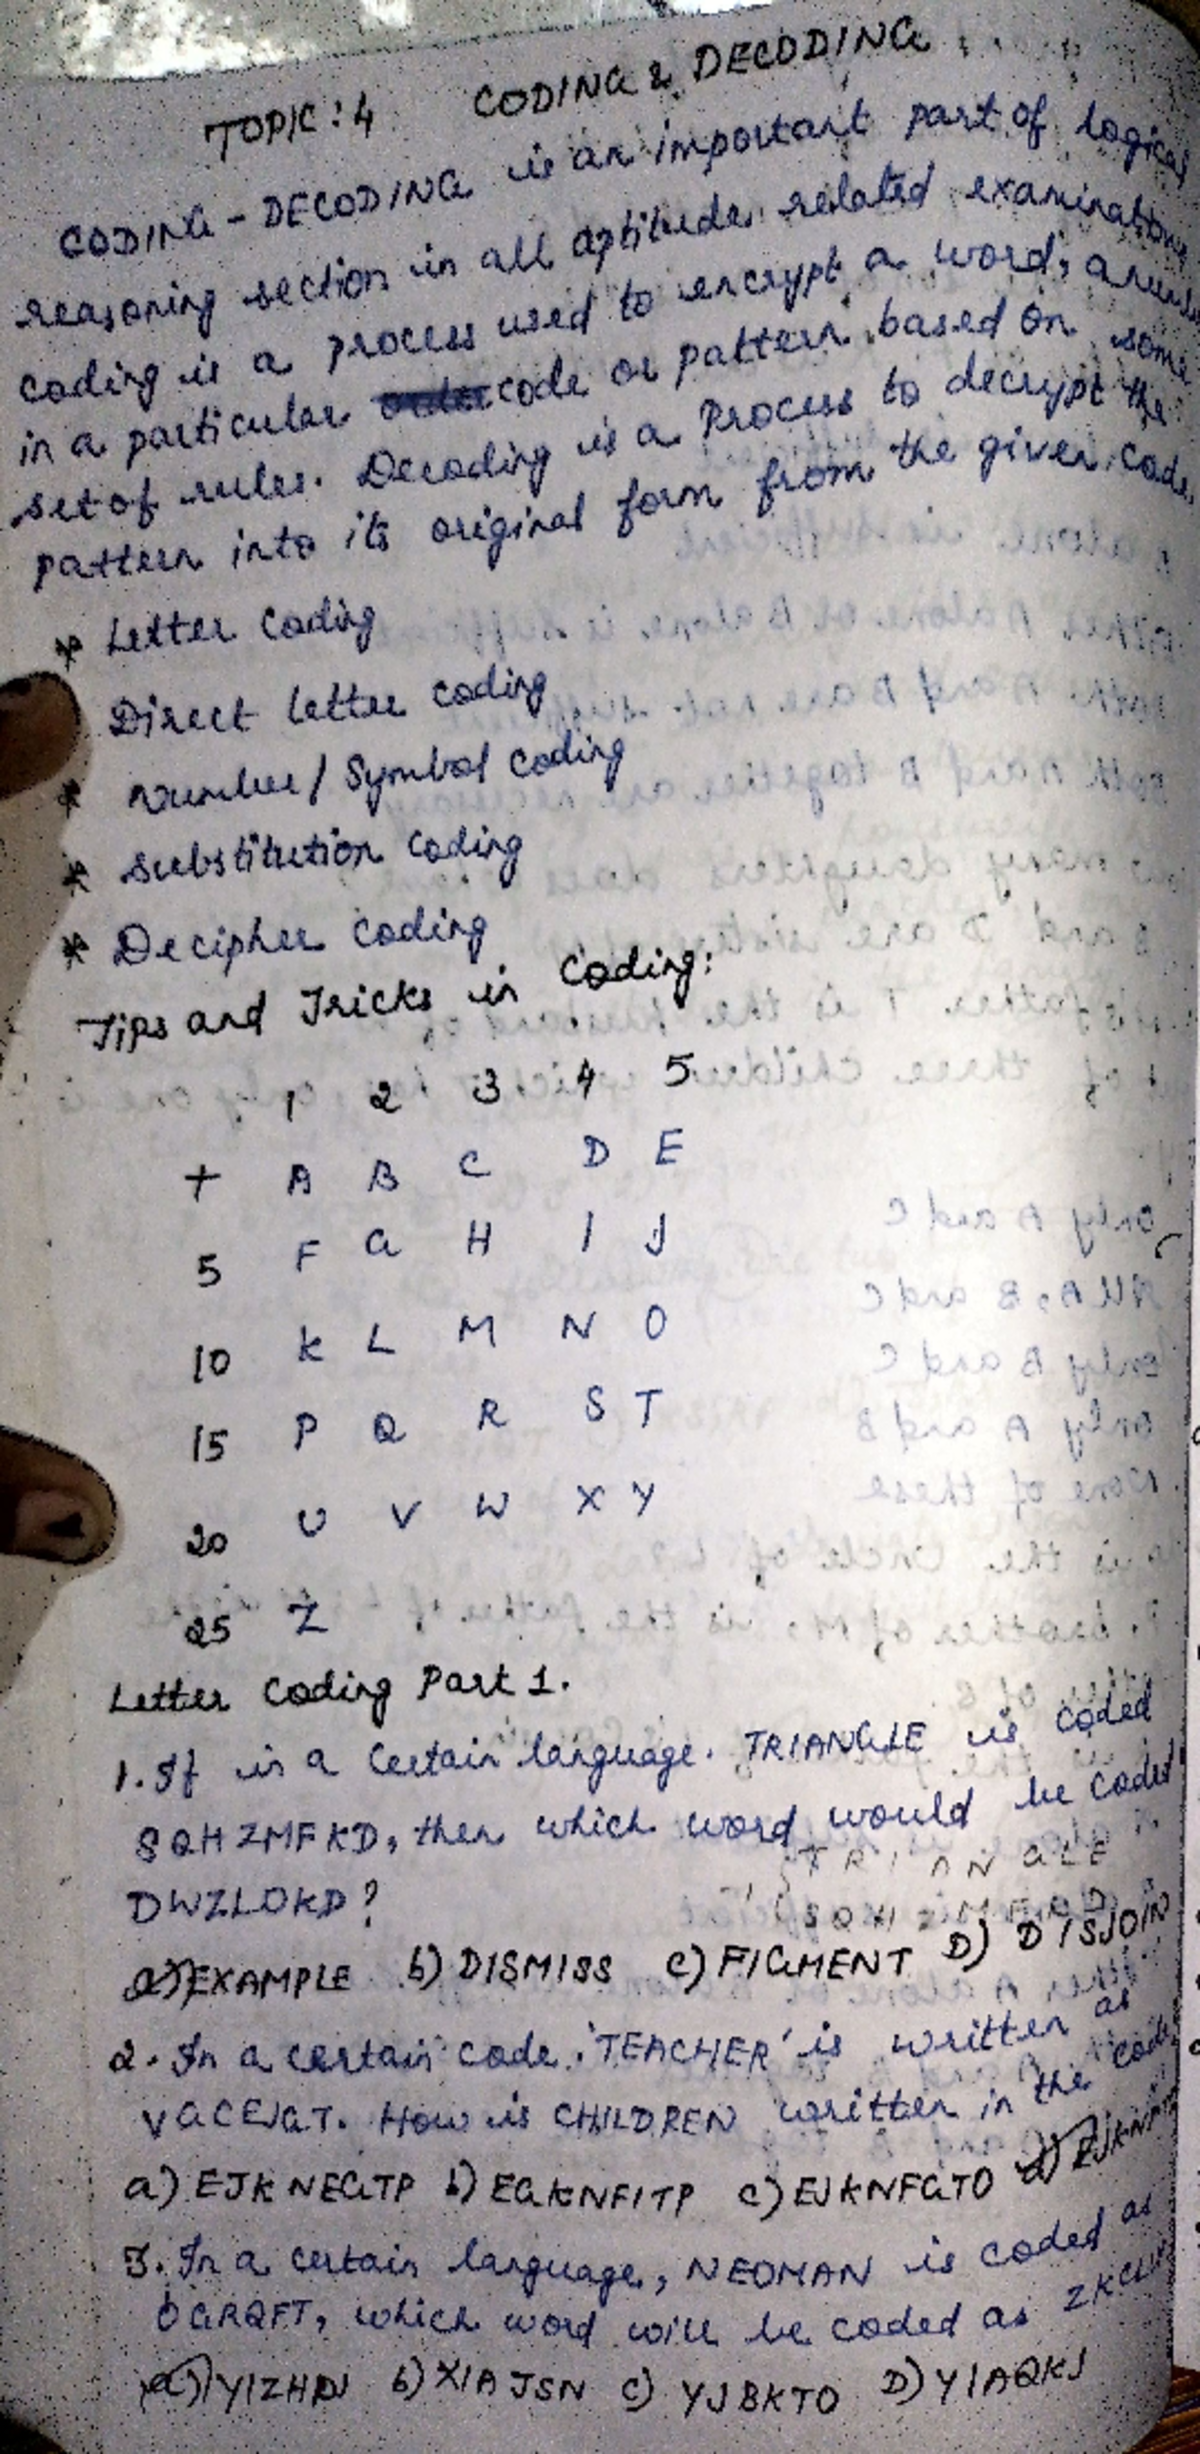 TOPIC : 4 CODING & DECODING
CODING - DECODING is an important part of logical
reasoning section in all aptitude related examinations
coding is a process used to encrypt a word, a
in a particular code or pattern based on some
set of rules. Decoding is a Process to decrypt the
pattern into its original form from the given code
* Letter Coding
Direct letter coding
* Number / Symbol coding
* substitution coding
* Decipher coding
Tips and Tricks in Coding:
1 2 3 4 5
+ A B C D E
5 F G H I J
10 K L M N O
15 P Q R S T
20 U V W X Y
25 Z
Letter Coding Part 1.
1. If in a Certain language. TRIANGLE is coded
SQHZMFKD, then which word would be coded
TRIANGLE
DWZLOKD?
a) EXAMPLE b) DISMISS c) FIGMENT D) DISJOIN
2. In a certain code. 'TEACHER' is written as
VGCEJGT. How is CHILDREN written in the code
a) EJKNEGTP b) EGKNFITP c) EJKNFGTO d)
3. In a certain language, NEOMAN is coded as
OGRQFT, which word will be coded as
a) YIZHDJ b) XIAJSN c) YJBKTO D) YIAQKJ